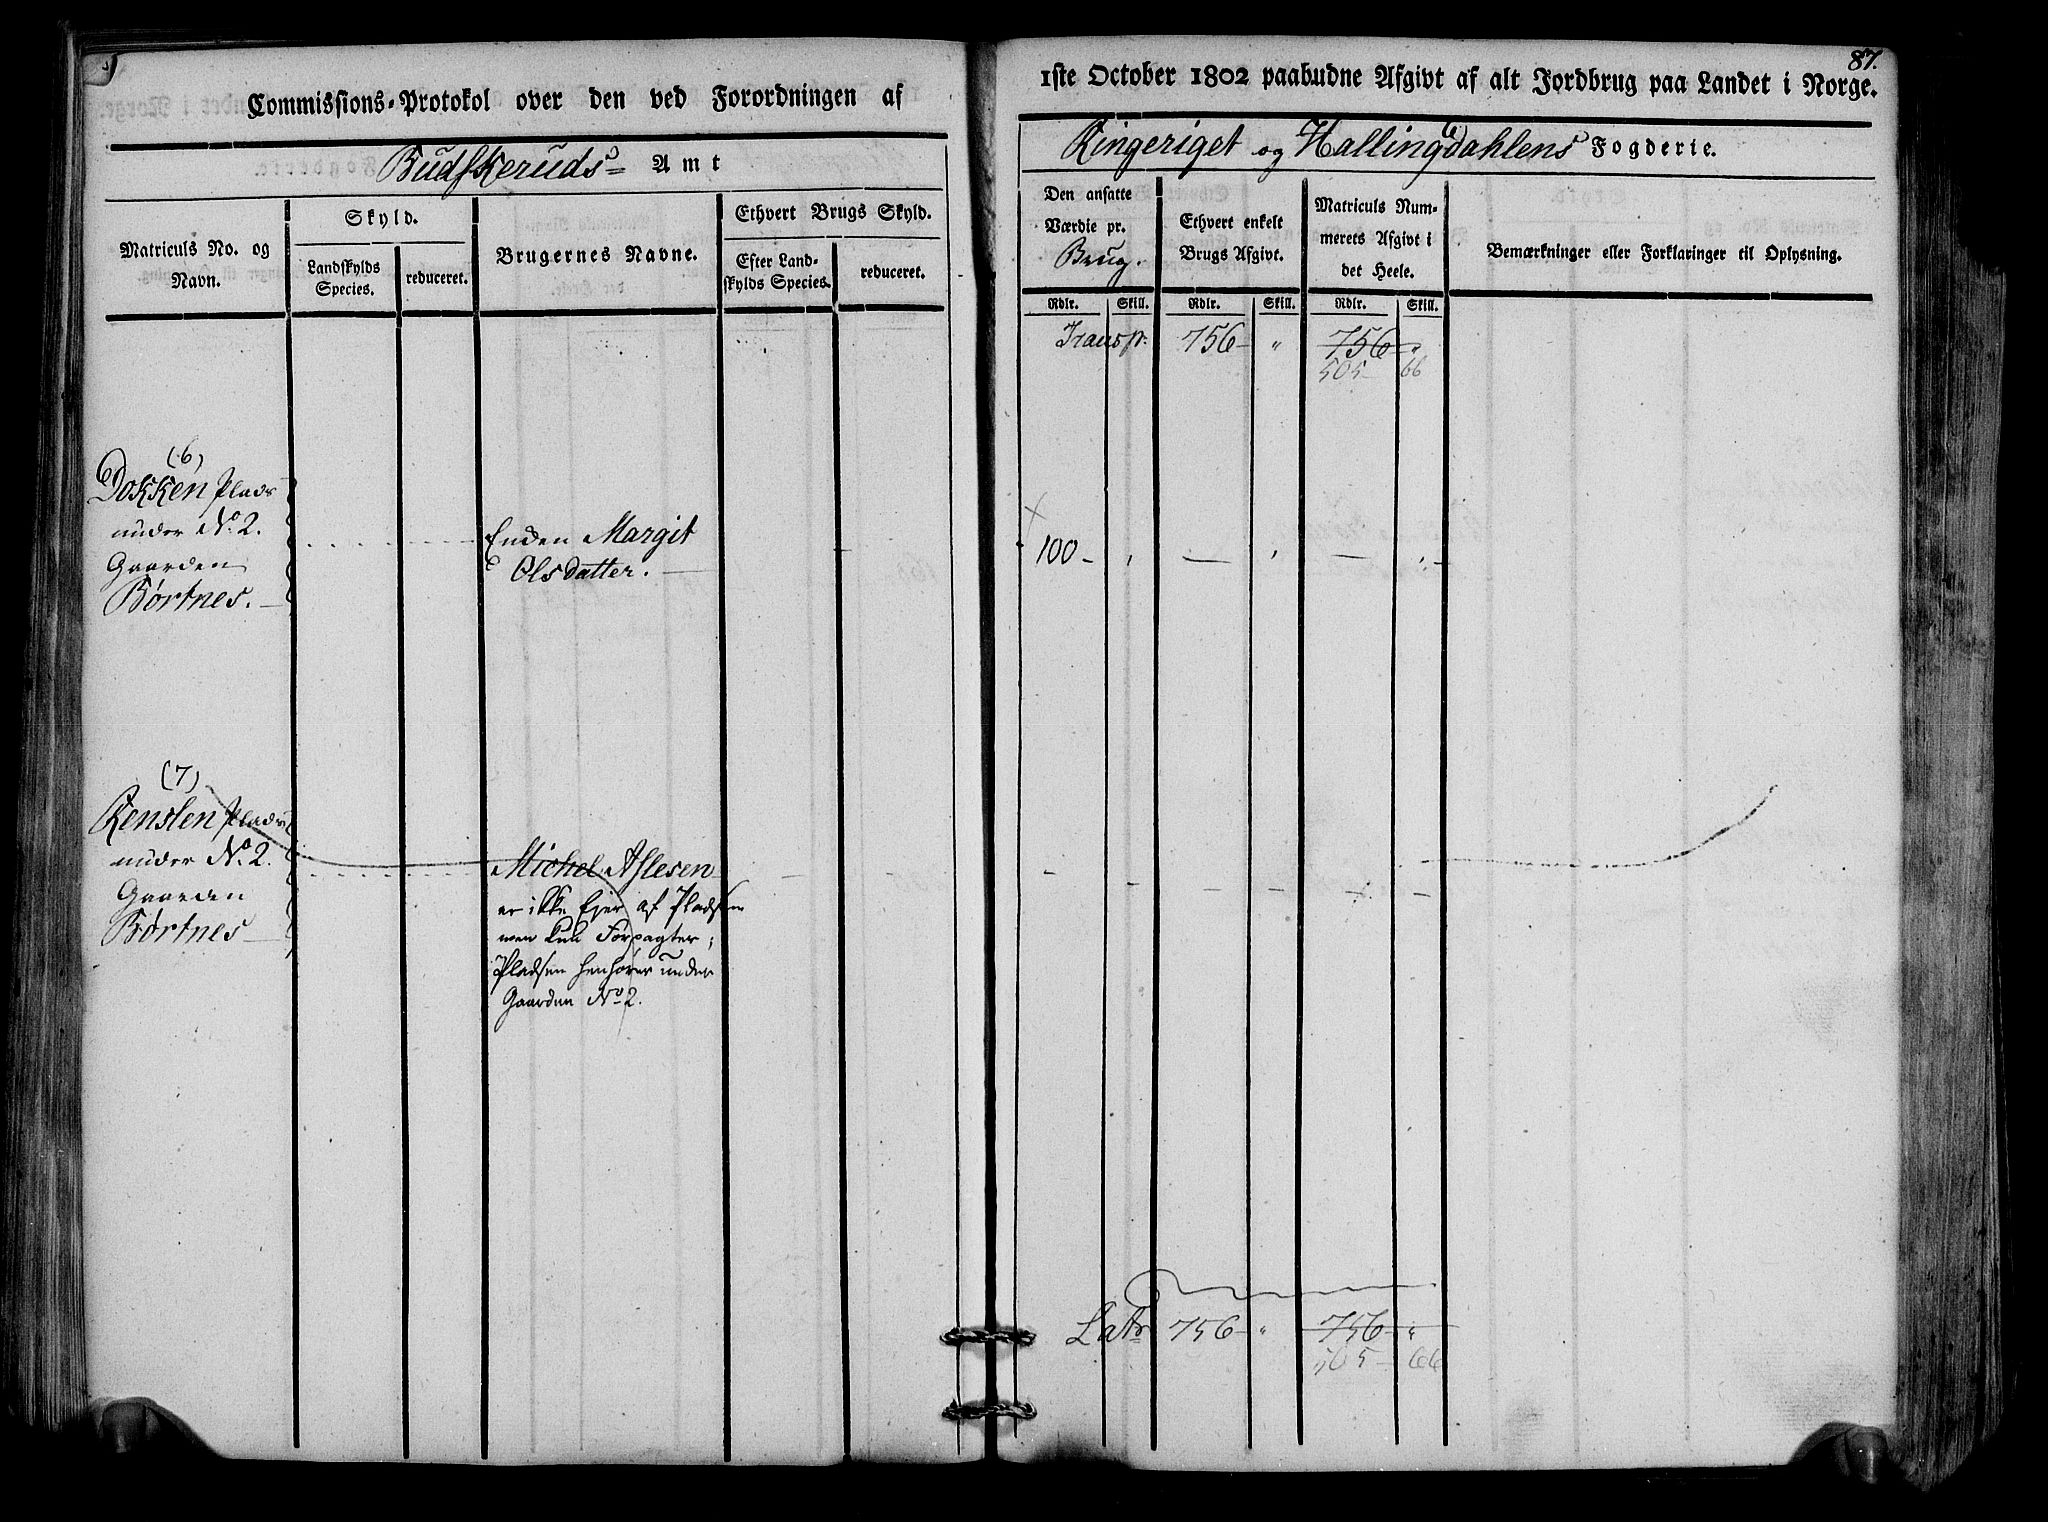 Commissions-Protokol over den ved Forordningen af
Budskeruds Amt
Matriculs No. og
Navn.
Skyld.
Landskylds
Species.
reduceret.
Brugernes Navne.
Ethvert Brugs Skyld.
Efter Land-
skylds Species.
reduceret.
(6)
Dokken Plads
under No. 2.
Gaarden
Børtnes.
Enden Margit
Olsdatter.
(7)
Renslen Plads
under No. 2.
Gaarden
Børtnes
Michel Aslesen
er ikke Ejer af Pladsen
men kun Forpagter;
Pladsen henhører under
Gaarden No 2.
87.
1ste October 1802 paabudne Afgivt af alt Jordbrug paa Landet i Norge.
Ringeriget og Hallingdahlens Fogderie.
Den ansatte
Værdie pr.
Brug.
Ethvert enkelt
Brugs Afgivt.
Matriculs Num-
merets Afgivt i
det Heele.
Bemærkninger eller Forklaringer til Oplysning.
Rdlr. Skill. Rdlr. Skill. Rdlr. Skill.
Transp. 756 - " 756 - "
505 - 66
100 -
Latr 756 - " 756 - "
505 - 66